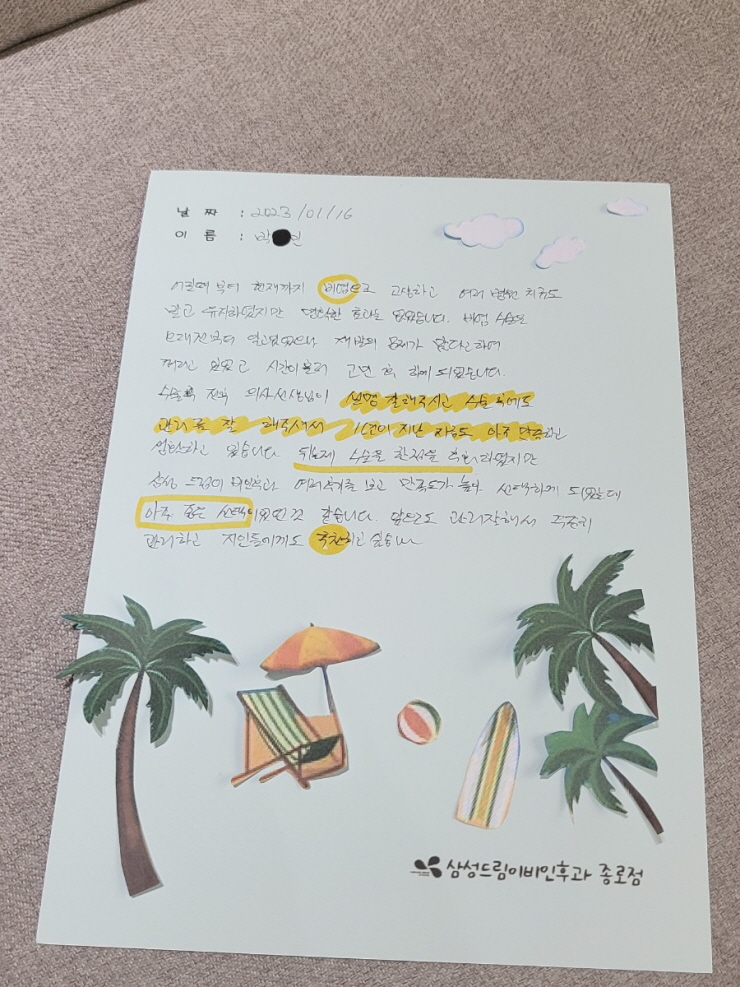 날 짜 : 2023/01/16
이 름 : 박 인
어릴때 부터 현재까지 비염으로 고생하고 여러 병원 치료도
받고 유지하였지만 명확한 효과는 없었습니다. 비염 수술은
오래전부터 알고있었으나 재발의 문제가 많다고하여
꺼리고 있었고 시간이 흘러 고민 끝에 하게 되었습니다.
수술 전후 의사선생님이 설명 잘해주시고 수술 후에도
관리를 잘 해주셔서 1년이 지난 지금도 아주 만족하고
있습니다 뒤늦게 수술을 한것을 후회하였지만
삼성 드림이비인후과 여러후기를 보고 만족도가 높아 선택하게 되었는데
아주 좋은 선택이었던것 같습니다. 앞으로도 관리잘해서 꾸준히
관리하고 지인들에게도 추천하고 싶습니다
삼성드림이비인후과 종로점